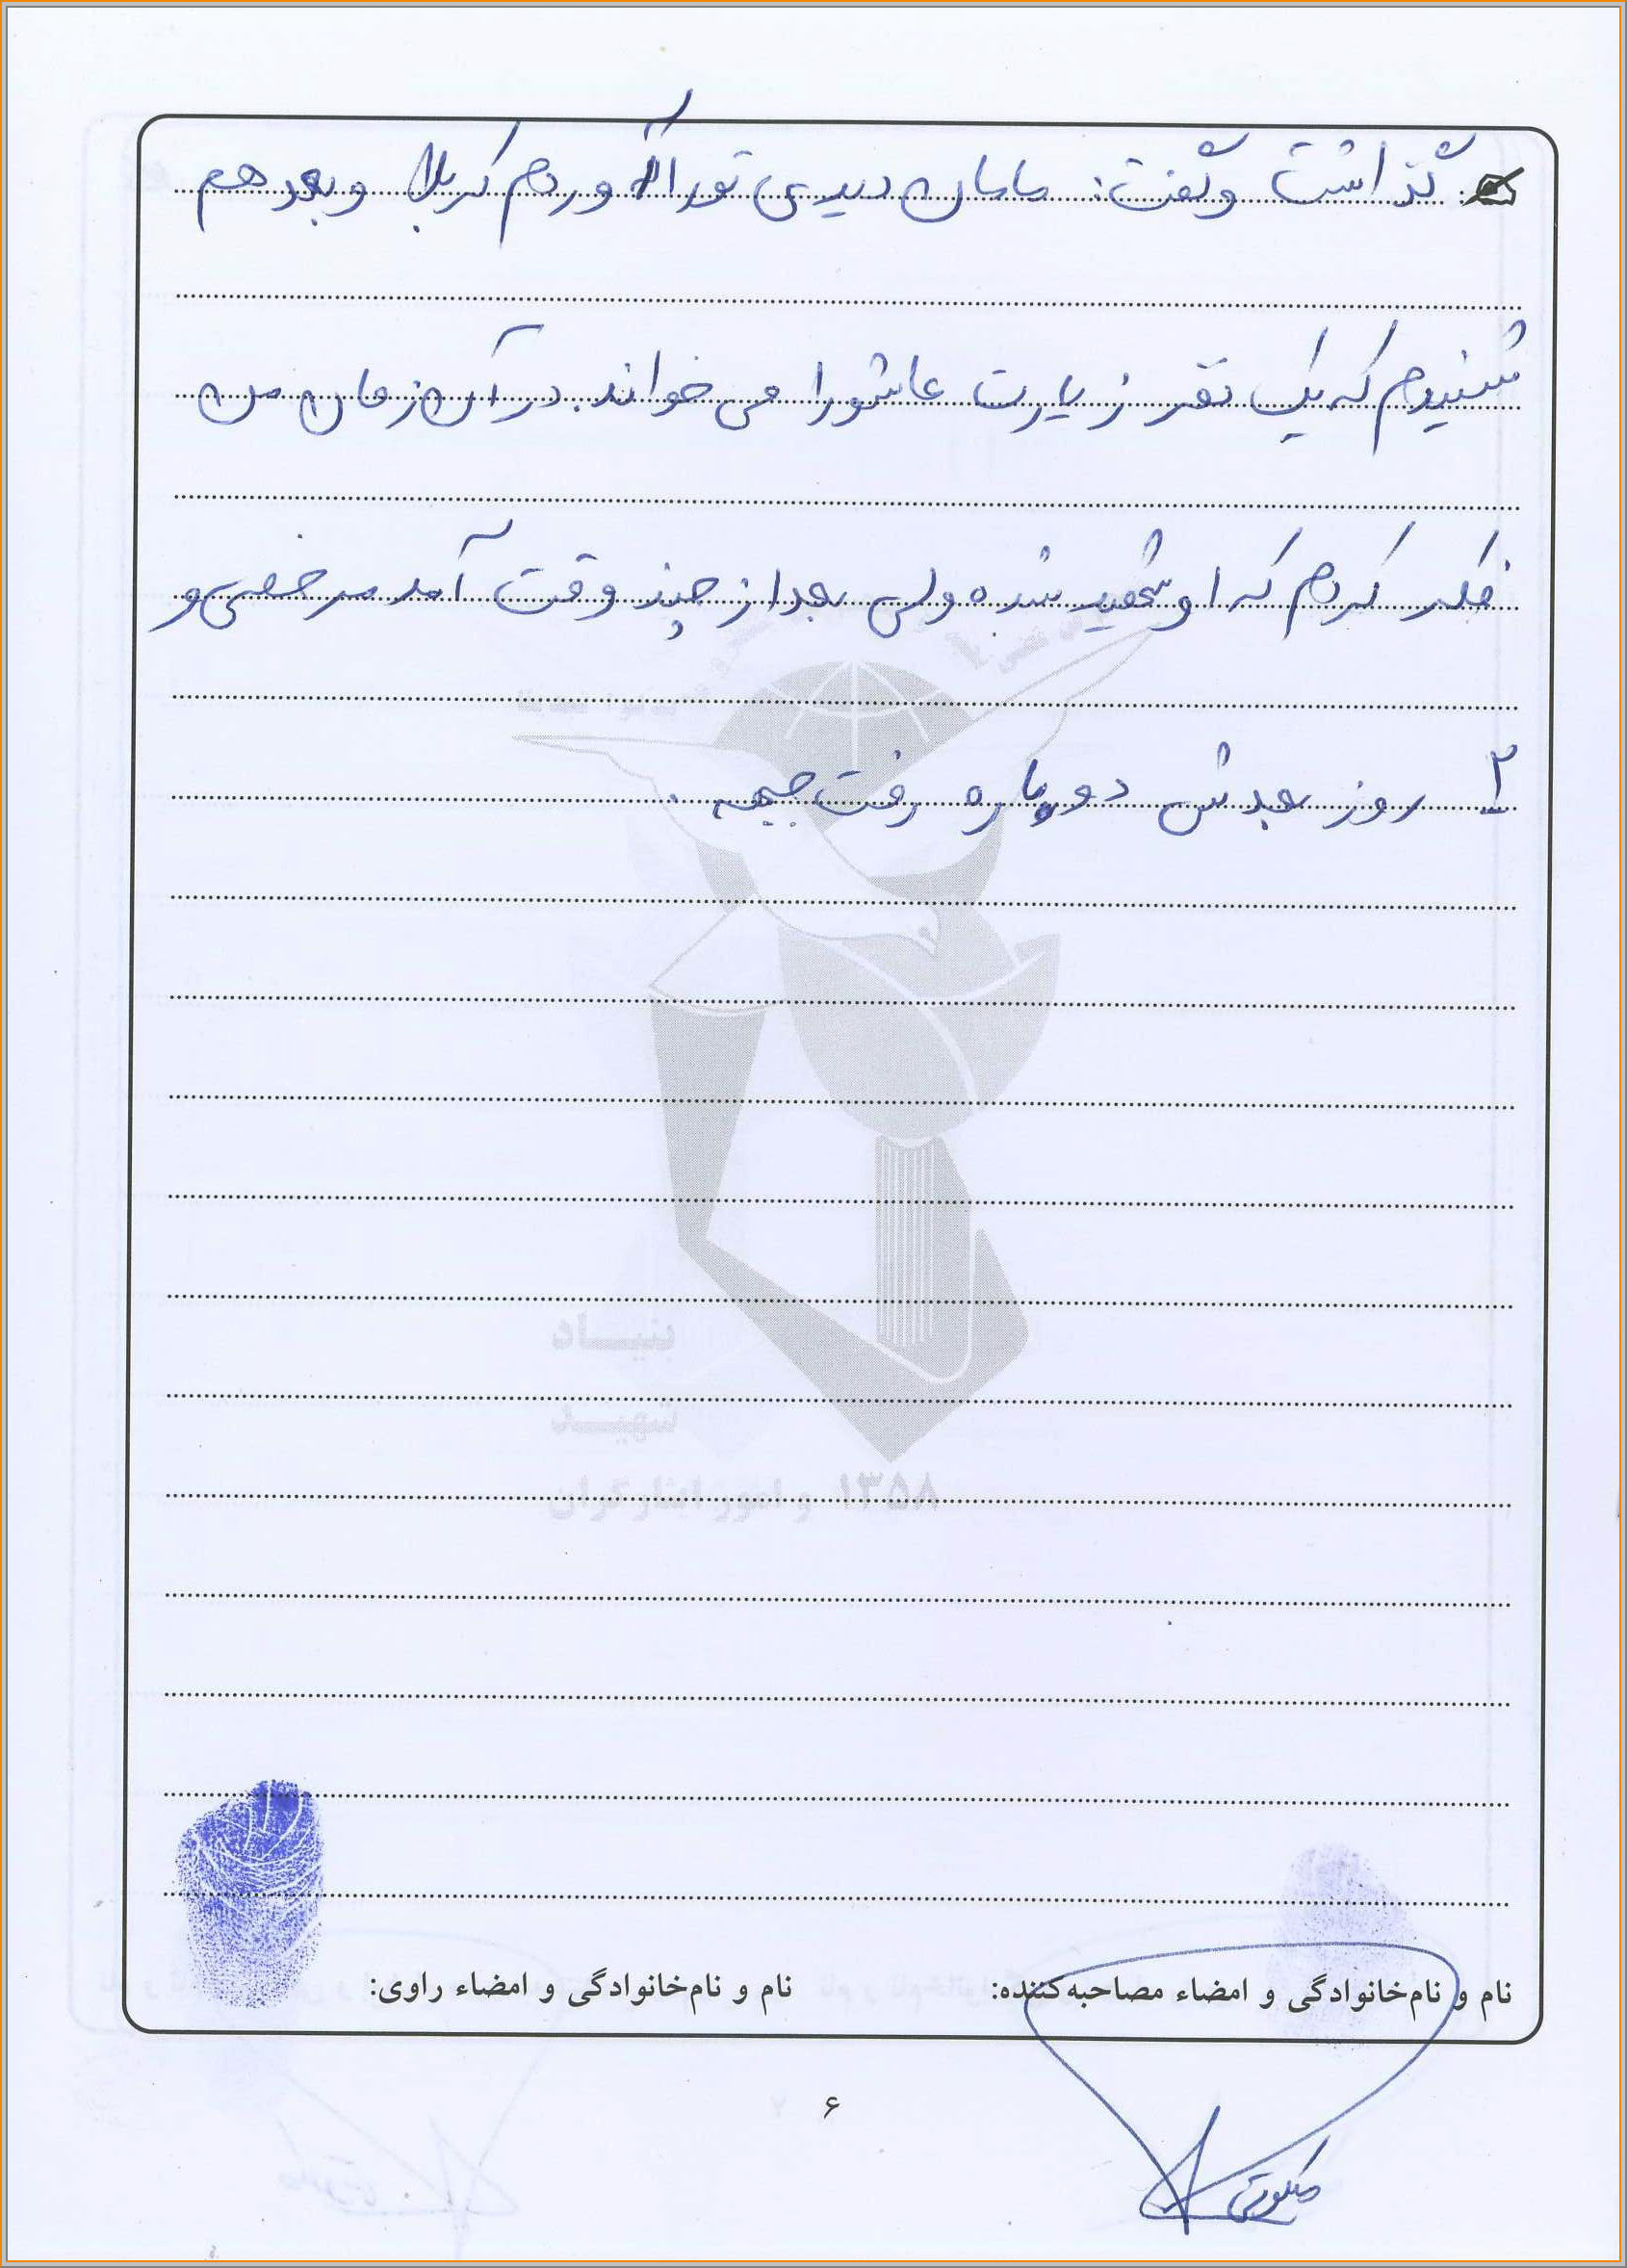 گذاشت و گفت: مامان دیدی تورا آوردم کربلا و بعد هم
شنیدم که یک نفر زیارت عاشورا می خواند. در آن زمان من
فکر کردم که او شهید شده ولی بعد از چند وقت آمد مرخصی و
۲ روز بعدش دوباره رفت جبهه.
بنیاد
شهید
و امور ایثارگران ۱۳۵۸
نام و نام‌خانوادگی و امضاء مصاحبه‌کننده: نام و نام‌خانوادگی و امضاء راوی:
۶